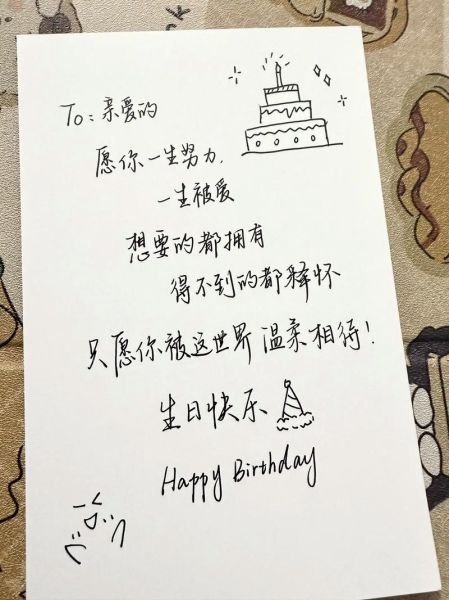 To: 亲爱的
愿你一生努力,
一生被爱
想要的都拥有
得不到的都释怀
只愿你被这世界温柔相待!
生日快乐
Happy Birthday